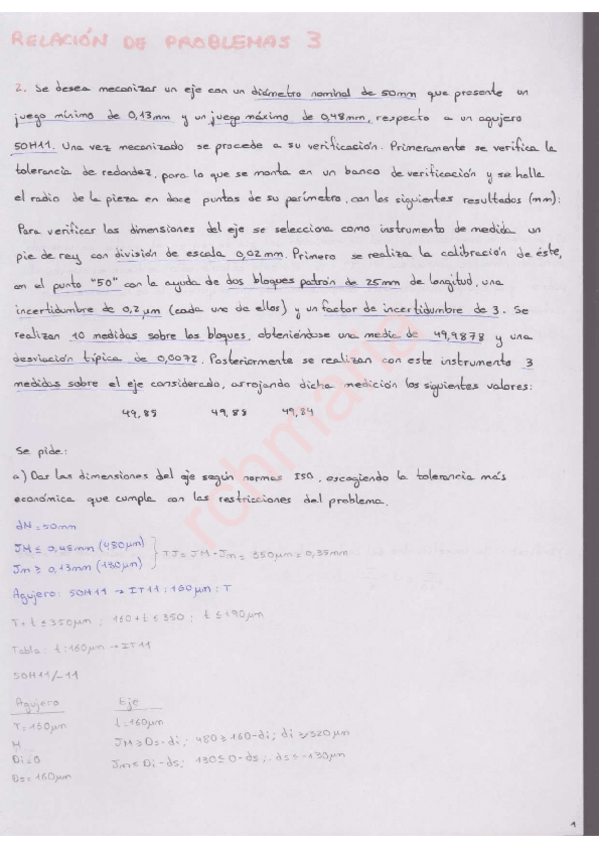 RELACIÓN DE PROBLEMAS 3
2. Se desea mecanizar un eje con un diámetro nominal de 50mm que presente un
juego mínimo de 0,13mm y un juego máximo de 0,48mm, respecto a un agujero
50H11. Una vez mecanizado se procede a su verificación. Primeramente se verifica la
tolerancia de redondez, para lo que se monta en un banco de verificación y se halla
el radio de la pieza en doce puntos de su perímetro, con los siguientes resultados (mm):
Para verificar las dimensiones del eje se selecciona como instrumento de medida un
pie de rey con división de escala 0,02mm. Primero se realiza la calibración de éste,
en el punto "50" con la ayuda de dos bloques patrón de 25mm de longitud, una
incertidumbre de 0,2 μm (cada uno de ellos) y un factor de incertidumbre de 3. Se
realizan 10 medidas sobre los bloques, obteniéndose una media de 49,9878 y una
desviación típica de 0,0072. Posteriormente se realizan con este instrumento 3
medidas sobre el eje considerado, arrojando dicha medición los siguientes valores:
49,88 49,88 49,84
Se pide:
a) Dar las dimensiones del eje según normas ISO, escogiendo la tolerancia más
económica que cumpla con las restricciones del problema.
dN = 50mm
JM ≤ 0,48mm (480μm)
Jm ≥ 0,13mm (130μm)
TJ = JM - Jm = 350μm = 0,35mm
Agujero: 50H11 → IT11: 160μm : T
T + t ≤ 350μm ; 160 + t ≤ 350 ; t ≤ 190μm
Tabla: t: 160μm → IT11
50H11/_11
Agujero Eje
T = 160μm t = 160μm
H JM ≥ Ds - di ; 480 ≥ 160 - di ; di ≥ 320μm
Di = 0 Jm ≤ Di - ds ; 130 ≤ 0 - ds ; ds ≤ -130μm
Ds = 160μm
rohmaria
1